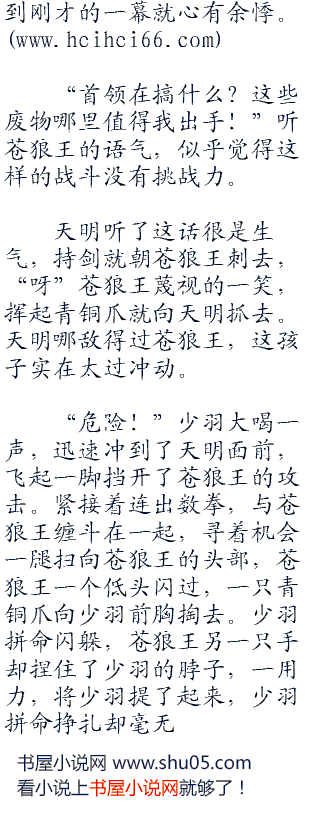 到刚才的一幕就心有余悸。
(www.hcihci66.com)
“首领在搞什么？这些
废物哪里值得我出手！”听
苍狼王的语气，似乎觉得这
样的战斗没有挑战力。
天明听了这话很是生
气，持剑就朝苍狼王刺去，
“呀”苍狼王蔑视的一笑，
挥起青铜爪就向天明抓去。
天明哪敌得过苍狼王，这孩
子实在太过冲动。
“危险！”少羽大喝一
声，迅速冲到了天明面前，
飞起一脚挡开了苍狼王的攻
击。紧接着连出数拳，与苍
狼王缠斗在一起，寻着机会
一腿扫向苍狼王的头部，苍
狼王一个低头闪过，一只青
铜爪向少羽前胸掏去。少羽
拼命闪躲，苍狼王另一只手
却捏住了少羽的脖子，一用
力，将少羽提了起来，少羽
拼命挣扎却毫无
书屋小说网 www.shu05.com
看小说上书屋小说网就够了！